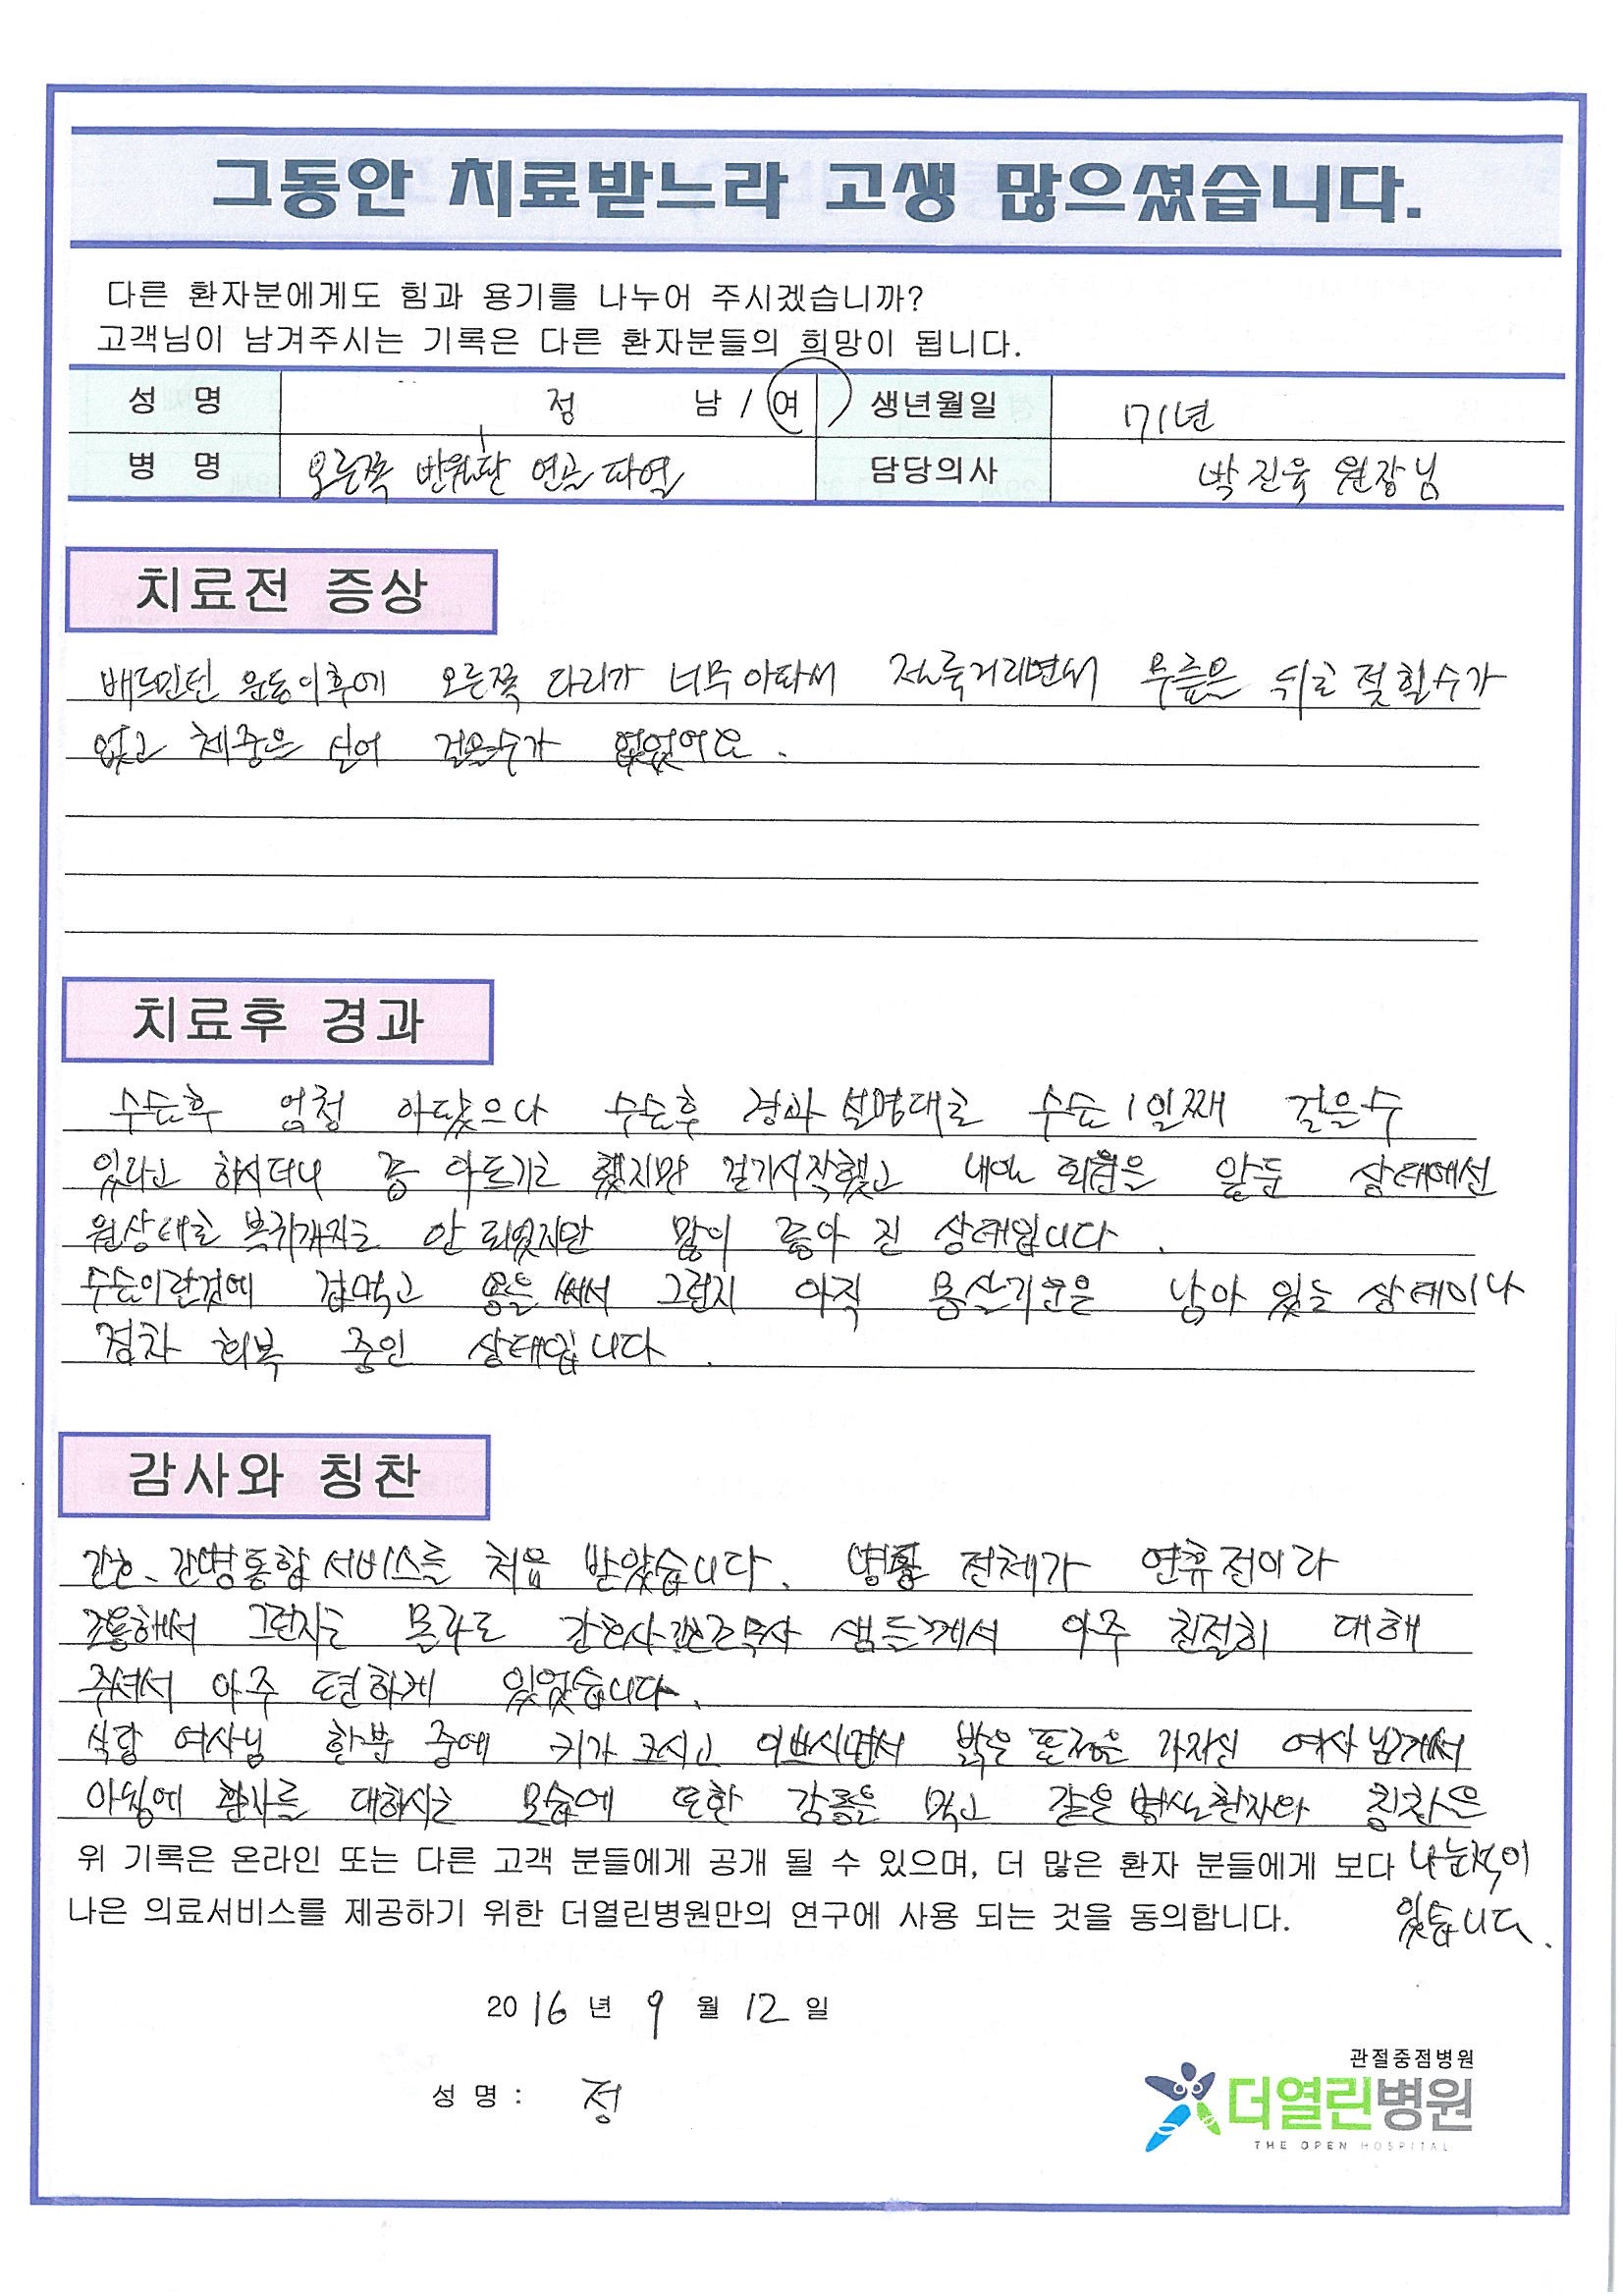 그동안 치료받느라 고생 많으셨습니다.
다른 환자분에게도 힘과 용기를 나누어 주시겠습니까?
고객님이 남겨주시는 기록은 다른 환자분들의 희망이 됩니다.
성 명 정 남 / 여 생년월일 71년
병 명 오른쪽 반월판 연골파열 담당의사 박진욱 원장님
치료전 증상
배드민턴 운동이후에 오른쪽 다리가 너무아파서 절룩거리면서 무릎을 뒤로 젖힐수가
없고 체중을 실어 걸을수가 없었어요.
치료후 경과
수술후 엄청 아팠으나 수술후 경과 설명대로 수술 1일째 걸을수
있다고 하시더니 좀 아프기는 했지만 걷기시작했고 내일 퇴원을 앞둔 상태에선
원상태로 복귀까지는 안 되었지만 많이 좋아 진 상태입니다.
수술이란것에 겁먹고 용을 써서 그런지 아직 몸살기운은 남아 있는 상태이나
점차 회복 중인 상태입니다.
감사와 칭찬
간호.간병통합서비스를 처음 받았습니다. 병황 전체가 연휴전이라
조용해서 그런지는 몰라도 간호사.간호조무사 샘들께서 아주 친절히 대해
주셔서 아주 편하게 있었습니다.
식당 여사님 한분 중에 키가 크시고 이쁘시면서 밝은 표정을 가지신 여사님께서
아침에 환자를 대하시는 모습에 또한 감동을 먹고 같은병실환자와 칭찬을
위 기록은 온라인 또는 다른 고객 분들에게 공개 될 수 있으며, 더 많은 환자 분들에게 보다 나눈적이
나은 의료서비스를 제공하기 위한 더열린병원만의 연구에 사용 되는 것을 동의합니다. 있습니다.
2016 년 9 월 12 일
성 명 : 정
관절중점병원
더열린병원
THE OPEN HOSPITAL